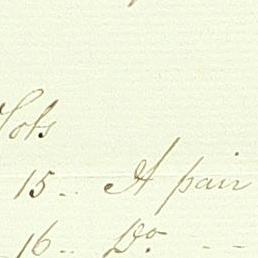 Lots
15 .. A pair
16 .. Do. - -